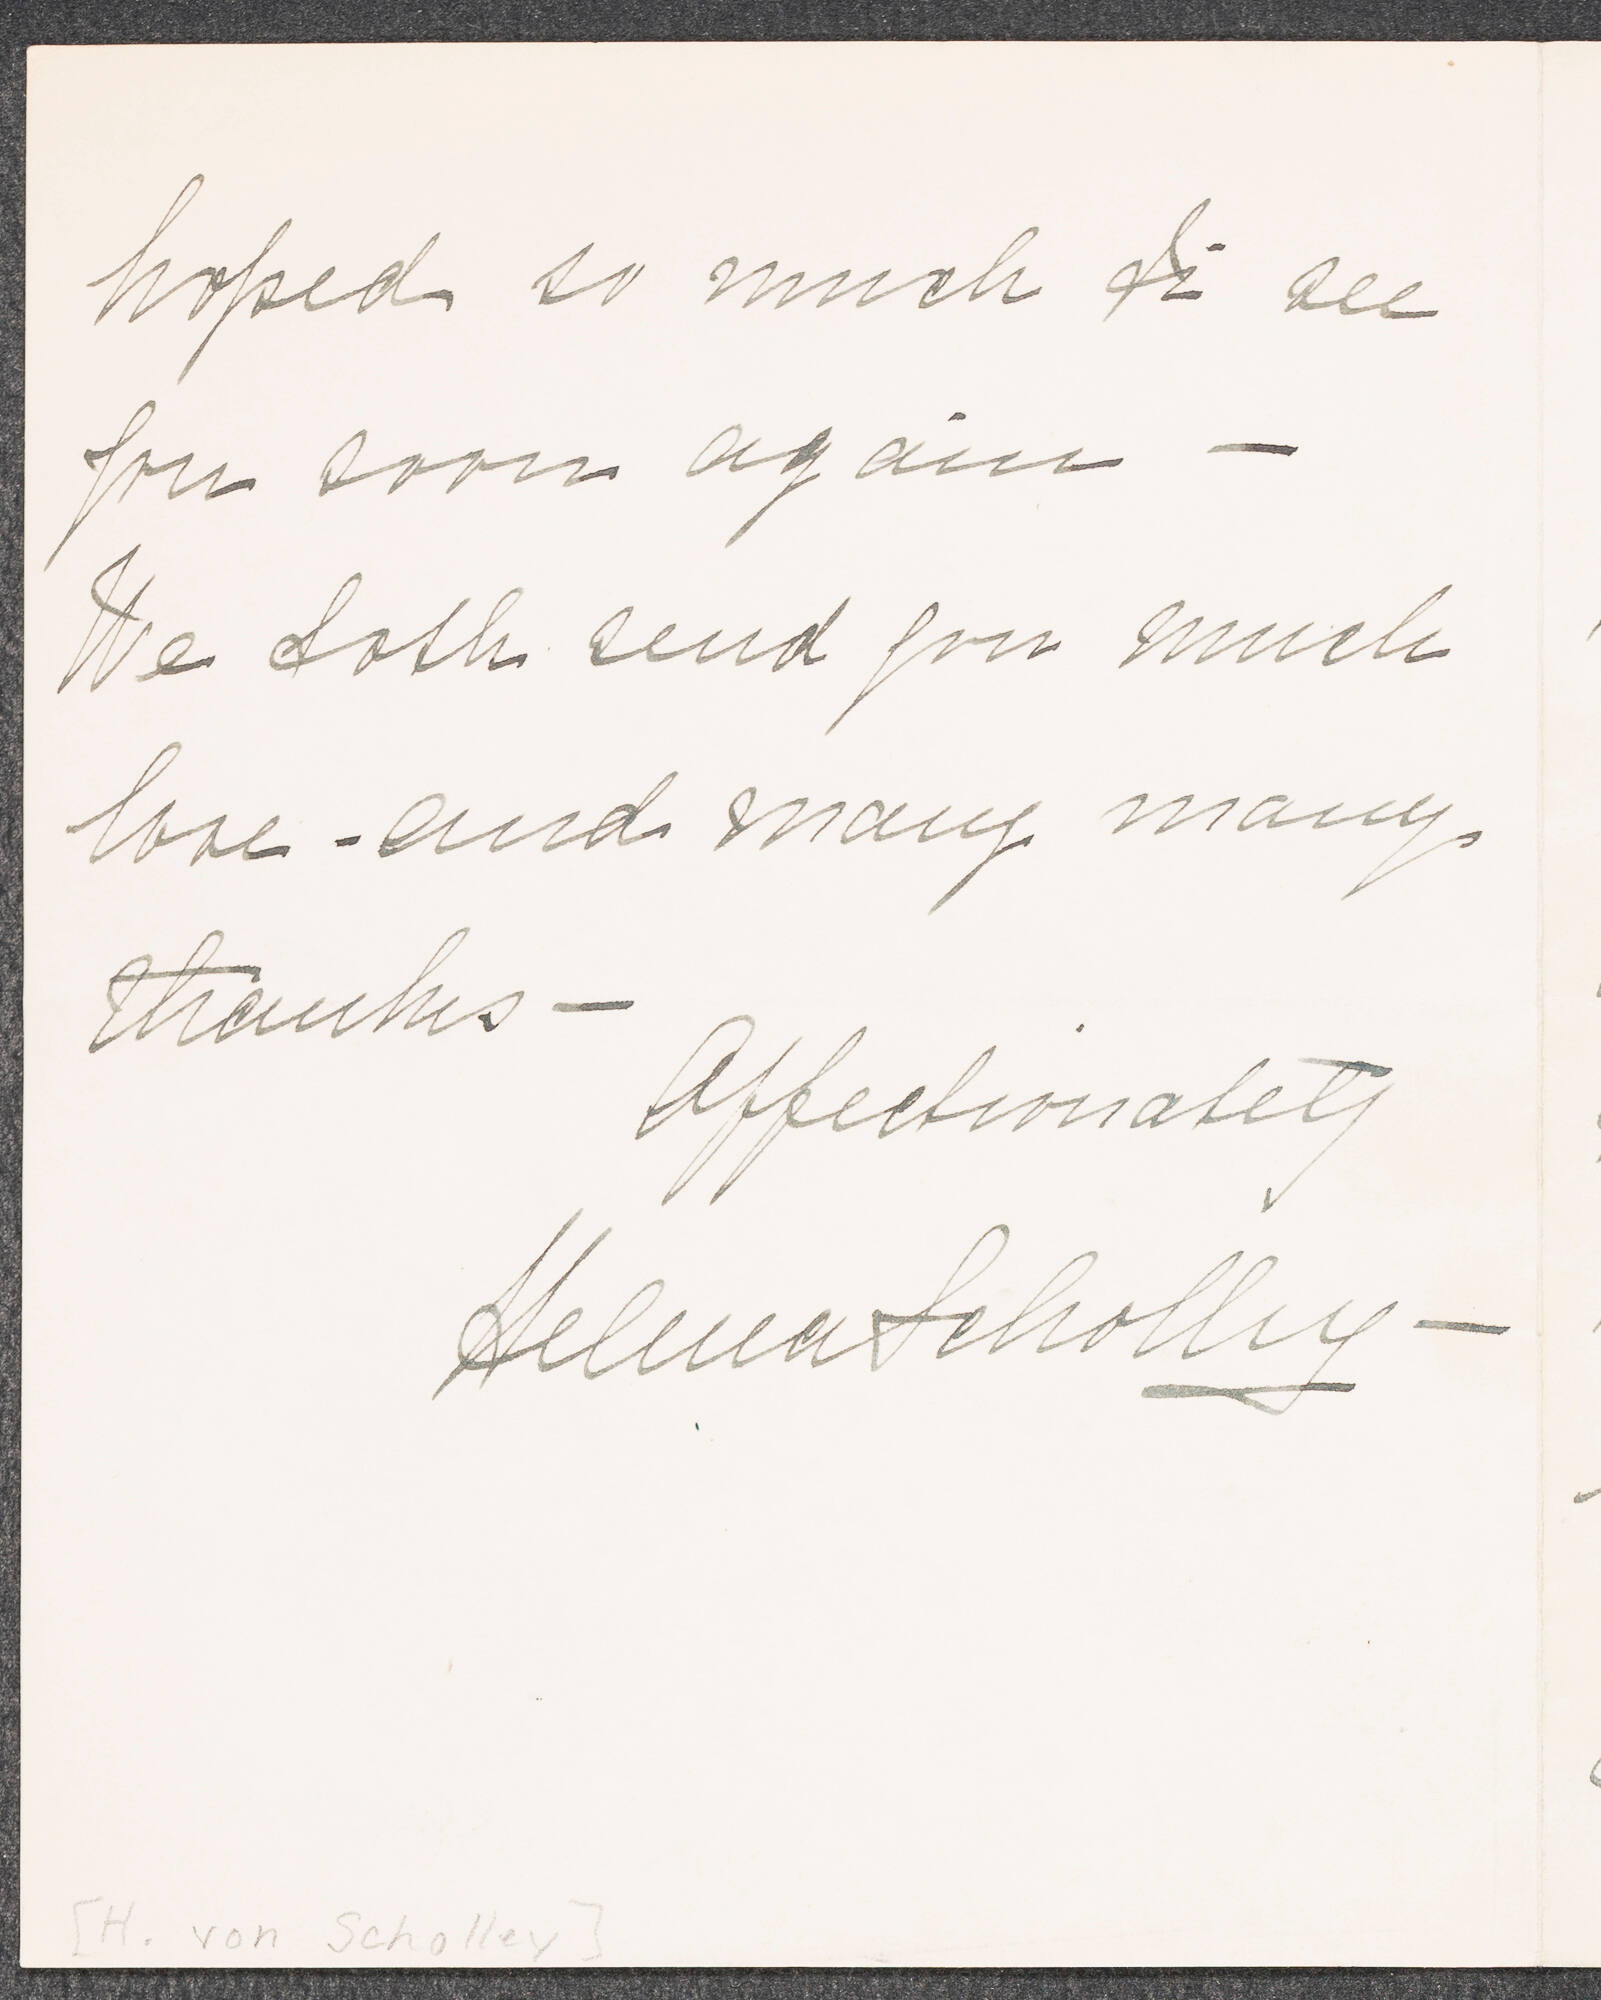 hoped so much to see
you soon again –
We both send you much
love - and many many
thanks –
Affectionately
Helma Scholley –
[H. von Scholley]